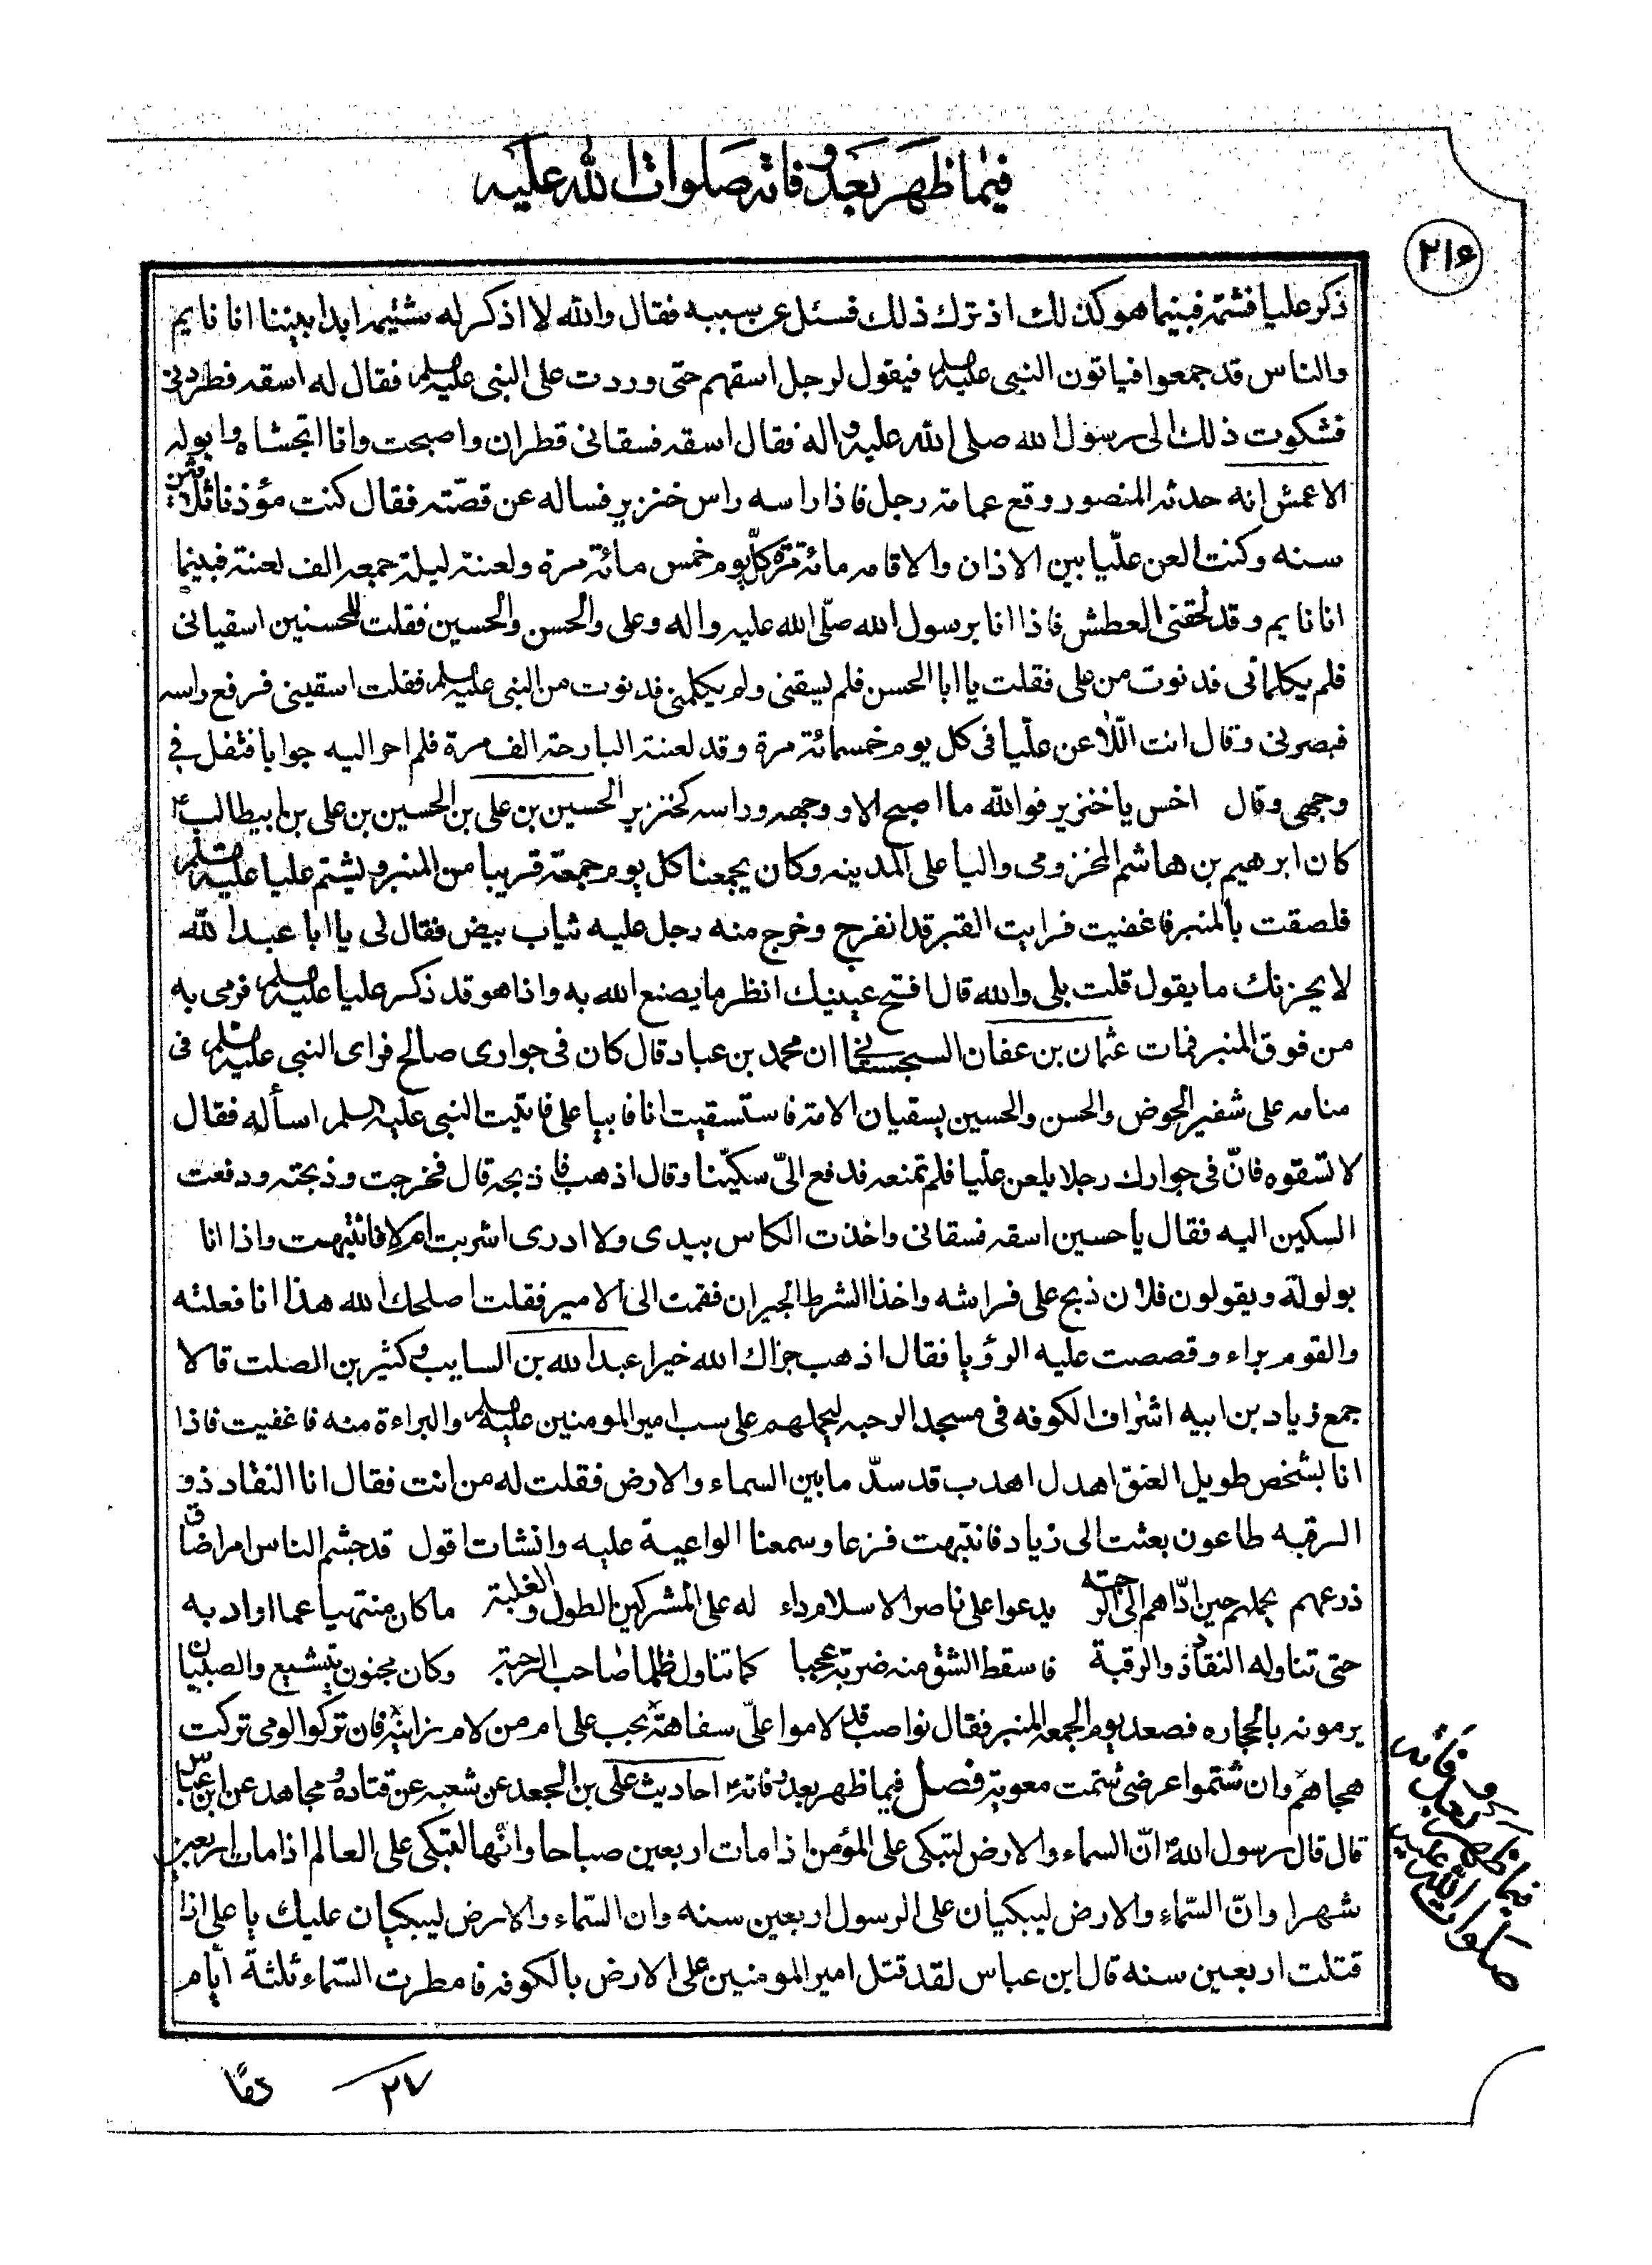 فيما ظهر بعد وفاته صلوات الله عليه
٢١٦
ذكر عليا فشتمه فبينما هو كذلك اذ ترك ذلك فسئل عن سببه فقال والله لا اذكر له شتيمه ابدا بيننا انا نايم
والناس قد جمعوا فياتون النبى عليه السلم فيقول لرجل اسقهم حتى وردت على النبى عليه السلم فقال له اسقه فطردنى
فشكوت ذلك الى رسول الله صلى الله عليه واله فقال اسقه فسقانى قطران واصبحت وانا اتجشاه وابوله
الاعمش انه حدثه المنصور وقع عمامة رجل فاذا راسه راس خنزير فساله عن قصّته فقال كنت مؤذنا ثلثين
سنه وكنت العن عليّا بين الاذان والاقامه مائة مرة كلّ يوم خمس مائة مرة ولعنته ليلة جمعه الف لعنة فبينما
انا نايم وقد لحقنى العطش فاذا انا برسول الله صلّى الله عليه واله وعلى والحسن والحسين فقلت للحسنين اسقيانى
فلم يكلمانى فدنوت من على فقلت يا ابا الحسن فلم يسقنى ولم يكلمنى فدنوت من النبى عليه السلم فقلت اسقينى فرفع راسه
فبصرنى وقال انت اللّاعن عليّا فى كل يوم خمسمائة مرة وقد لعنته البارحة الف مرة فلم احر اليه جوابا فتفل فى
وجهى وقال اخس يا خنزير فوالله ما اصبح الا ووجهه وراسه كخنزير الحسين بن على بن الحسين بن على بن ابيطالب ع
كان ابرهيم بن هاشم المخزومى واليا على المدينه وكان يجمعنا كل يوم جمعة قريبا من المنبر ويشتم عليا عليه السلم
فلصقت بالمنبر فاغفيت فرايت القبر قد انفرج وخرج منه رجل عليه ثياب بيض فقال لى يا ابا عبد الله
لا يحزنك ما يقول قلت بلى والله قال افتح عينيك انظر ما يصنع الله به واذا هو قد ذكر عليا عليه السلم فرمى به
من فوق المنبر فمات عثمان بن عفان السجستانى ان محمد بن عباد قال كان فى جوارى صالح فراى النبى عليه السلم فى
منامه على شفير الحوض والحسن والحسين يسقيان الامة فاستسقيت انا فابيا على فاتيت النبى عليه السلم اسأله فقال
لا تسقوه فانّ فى جوارك رجلا يلعن عليّا فلم تمنعه فدفع الىّ سكّينا وقال اذهب فاذبحه قال فخرجت وذبحته ودفعت
السكين اليه فقال يا حسين اسقه فسقانى واخذت الكاس بيدى ولا ادرى اشربت ام لا فانتبهت واذا انا
بولولة ويقولون فلان ذبح على فراشه واخذ الشرط الجيران فقمت الى الامير فقلت اصلحك الله هذا انا فعلته
والقوم براء وقصصت عليه الرؤيا فقال اذهب جزاك الله خيرا عبد الله بن السايب وكثير بن الصلت قالا
جمع زياد بن ابيه اشراف الكوفه فى مسجد الرحبه ليحملهم على سب امير المومنين عليه السلم والبراءة منه فاغفيت فاذا
انا بشخص طويل العنق اهدل اهدب قد سدّ ما بين السماء والارض فقلت له من انت فقال انا النقاد ذو
الرقبه طاعون بعثت الى زياد فانتبهت فزعا وسمعنا الواعية عليه وانشات اقول قد جشم الناس امرا ضاق
ذرعهم بحملهم حين ادّاهم الى الرحبته يدعوا على ناصر الاسلام داء له على المشركين الطول والغلبة ما كان منتهيا عما اراد به
حتى تناوله النقاد ذو الرقبة فاسقط الشق منه ضربة عجبا كما تناول ظلما صاحب الرحبة وكان مجنون يتشيع والصبيان
يرمونه بالحجاره فصعد يوم الجمعه المنبر فقال نواصب قد لاموا علىّ سفاهة بحب على ام من لام زانية فان تركوا لومى تركت
هجاهم وان شتموا عرضى شتمت معوية فصل فيما ظهر بعد وفاته ع احاديث على بن الجعد عن شعبه عن قتاده و مجاهد عن ابن عباس
قال قال رسول الله ص انّ السماء والارض لتبكى على المؤمن اذا مات اربعين صباحا وانّها لتبكى على العالم اذا مات اربعين
شهرا وانّ السّماء والارض ليبكيان على الرسول اربعين سنه وان السّماء والارض ليبكيان عليك يا على اذا
قتلت اربعين سنه قال ابن عباس لقد قتل امير المومنين على الارض بالكوفه فامطرت السّماء ثلثة ايّام
فيما ظهر بعد وفاته
صلوات الله عليه
٢٧
دمًا